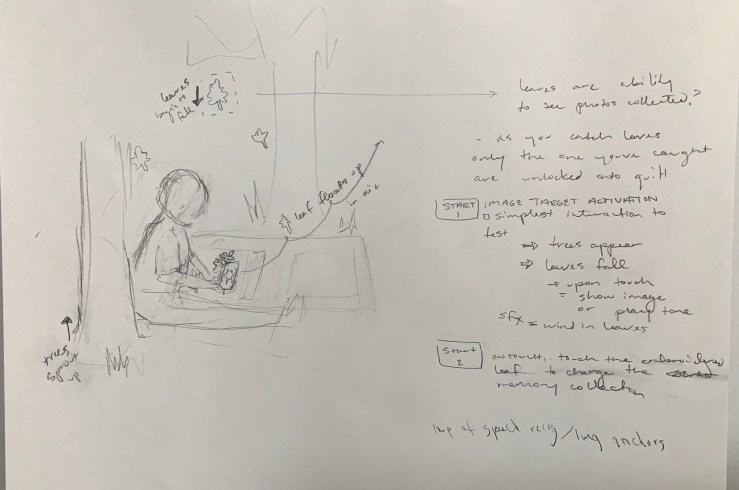 leaves
begin to
fall
leaves are ability
to see photos collected?
- as you catch leaves
only the one you've caught
are unlocked onto quilt
leaf floats up
in air
START
1
IMAGE TARGET ACTIVATION
simplest interaction to
test
⇒ trees appear
⇒ leaves fall
→ upon touch
= show image
or play tone
sfx = wind in leaves
trees
sprout
up
Start
2
ON TOUCH, touch the embroidered
leaf to change the
memory collection
imp of / img anchors